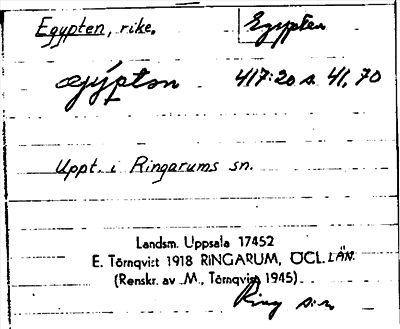 Egypten, rike. Egypten
ægýptən 417:20 s. 41, 70
Uppt. i Ringarums sn.
Landsm. Uppsala 17452
E. Törnqvist 1918 RINGARUM, ÖGL. LÄN.
(Renskr. av M. Törnqvist 1945)
Ring s:n